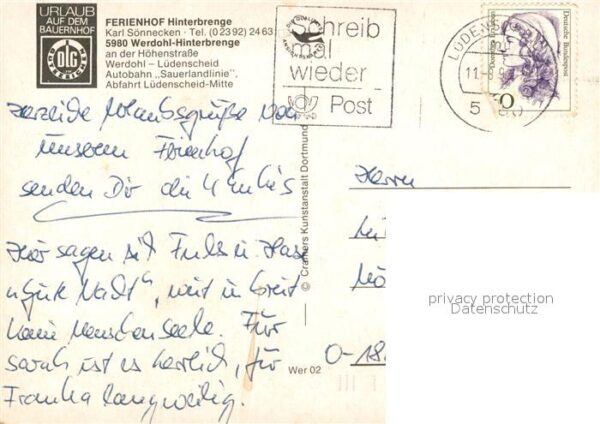 URLAUB
AUF DEM
BAUERNHOF
DLG
FERIENHOF Hinterbrenge
Karl Sönnecken · Tel. (0 23 92) 24 63
5980 Werdohl-Hinterbrenge
an der Höhenstraße
Werdohl – Lüdenscheid
Autobahn „Sauerlandlinie“,
Abfahrt Lüdenscheid-Mitte
schreib
mal
wieder
Post
LÜDEN
11.-8.9
Deutsche Bundespost
Herzliche Urlaubsgrüße von
unserem Ferienhof
senden Dir die
Hier sagen sich Fuchs u. Hase
„gute Nacht“, weit u. breit
keine Menschenseele. Für
Sarah ist es herrlich, für
Franka langweilig.
© Cramers Kunstanstalt Dortmund
Wer 02
Herrn
O-18
privacy protection
Datenschutz